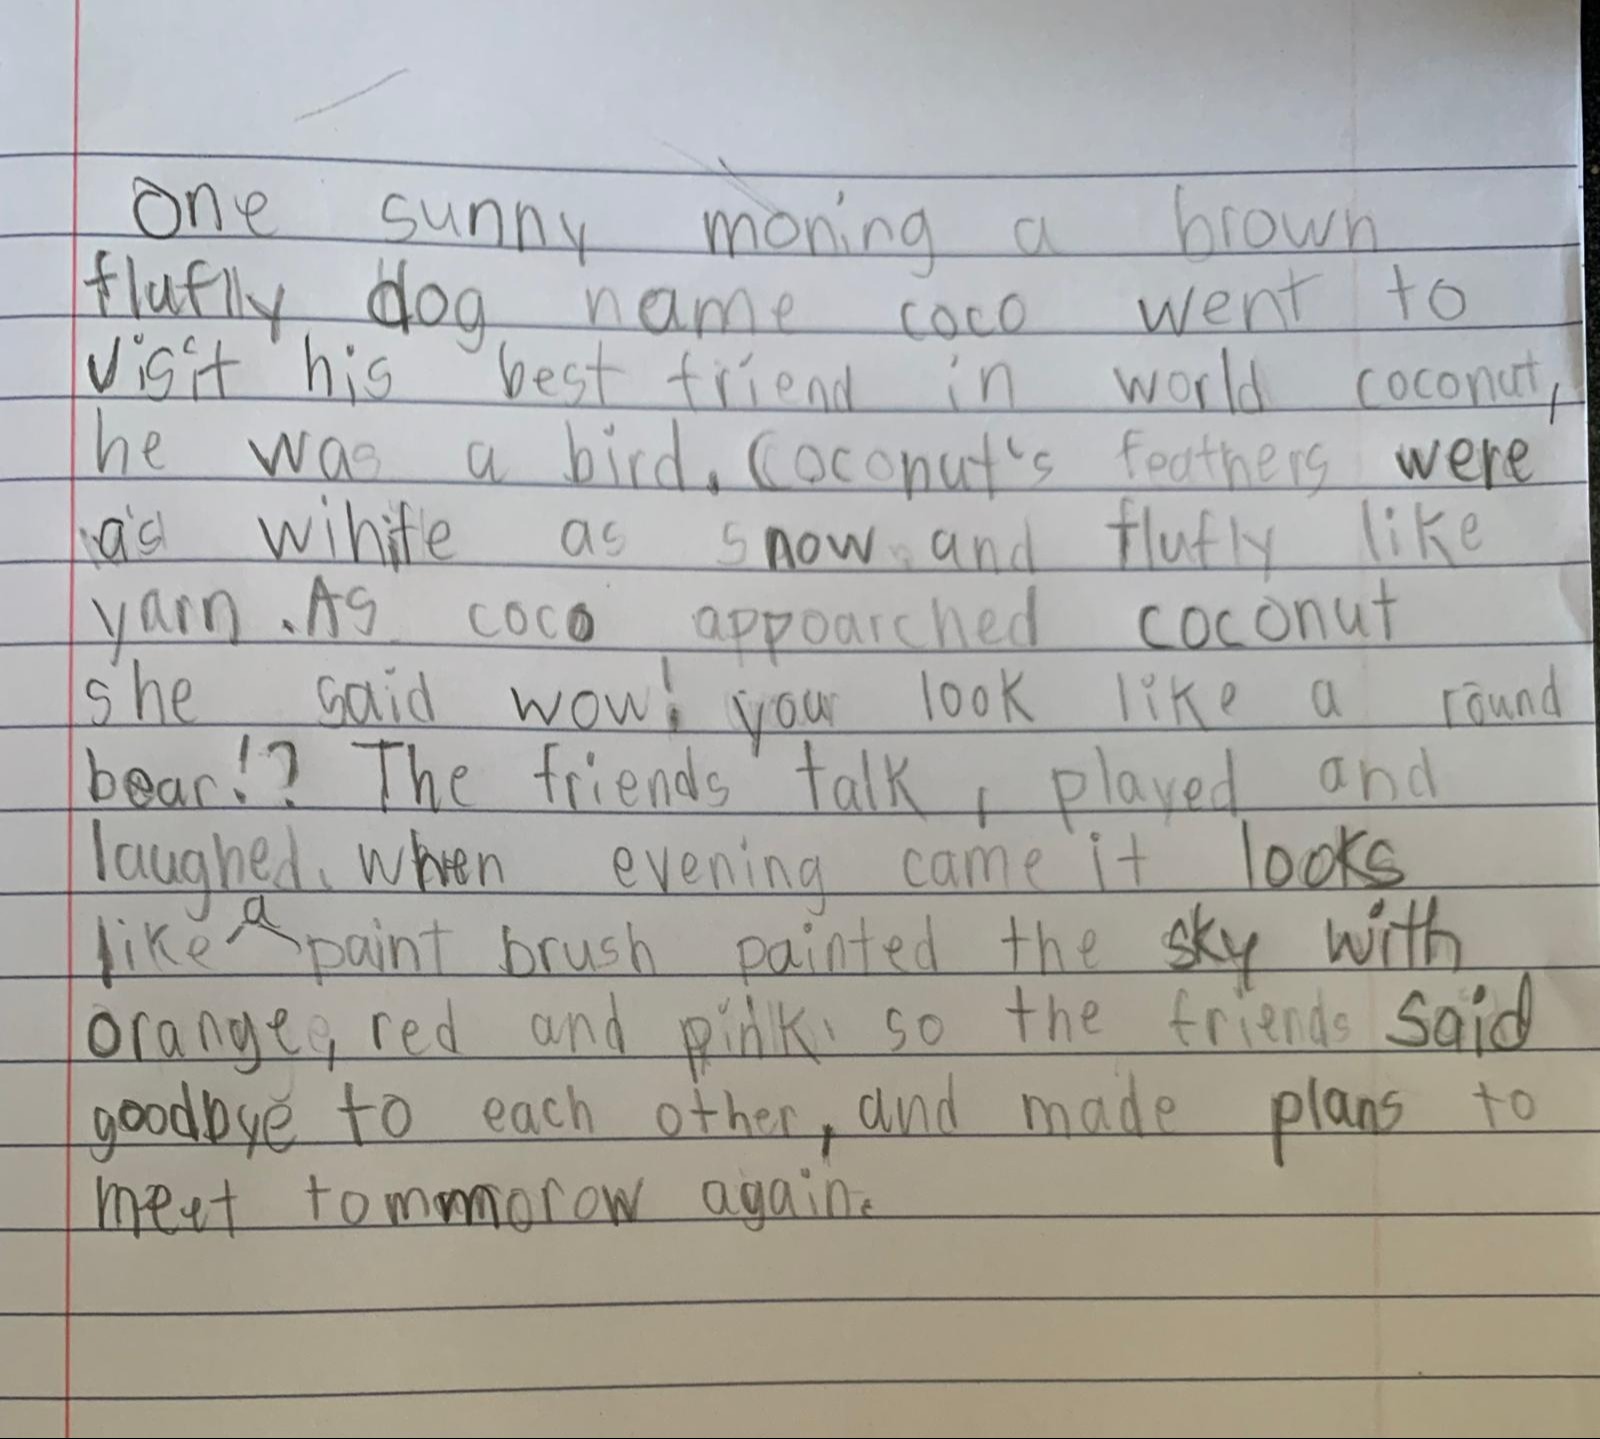 One sunny moning a brown
flufly dog name coco went to
visit his best friend in world coconut,
he was a bird. Coconut's feathers were
as wihite as snow and flufly like
yarn. As coco appoarched coconut
she said wow! your look like a round
bear!? The friends talk, played and
laughed. when evening came it looks
like a paint brush painted the sky with
orange, red and pink. so the friends said
goodbye to each other, and made plans to
meet tommmorow again.